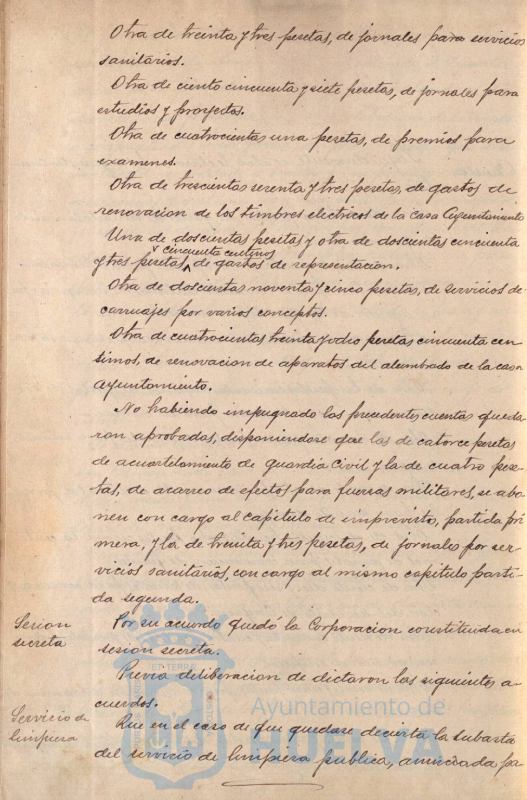 Otra de treinta y tres pesetas, de jornales para servicios
sanitarios.
Otra de ciento cincuenta y siete pesetas, de jornales para
estudios y proyectos.
Otra de cuatrocientas una pesetas, de premios para
examenes.
Otra de trescientas sesenta y tres pesetas, de gastos de
renovacion de los timbres electricos de la casa Ayuntamiento
Una de doscientas pesetas y otra de doscientas cincuenta
y cincuenta centimos
y tres pesetas, de gastos de representacion.
Otra de doscientas noventa y cinco pesetas, de servicios de
carruajes por varios conceptos.
Otra de cuatrocientas treinta y ocho pesetas cincuenta cen
timos, de renovacion de aparatos del alumbrado de la casa
Ayuntamiento.
No habiendo impugnado las precedentes cuentas queda
ron aprobadas, disponiendose que las de catorce pesetas
de acuartelamiento de guardia Civil y la de cuatro pese-
tas, de acarreo de efectos para fuerzas militares, se abo
nen con cargo al capitulo de imprevistos, partida pri
mera, y la de treinta y tres pesetas, de jornales por ser
vicios sanitarios, con cargo al mismo capitulo parti-
da segunda.
Sesion
secreta
Por su acuerdo quedó la Corporacion constituida en
sesion secreta.
Previa deliberacion de dictaron los siguientes a-
cuerdos.
Servicio de
limpieza
Que en el caso de que quedase decierta la subasta
del servicio de limpieza publica, anunciada pa
ET TERRÆ
Ayuntamiento de
HUELVA